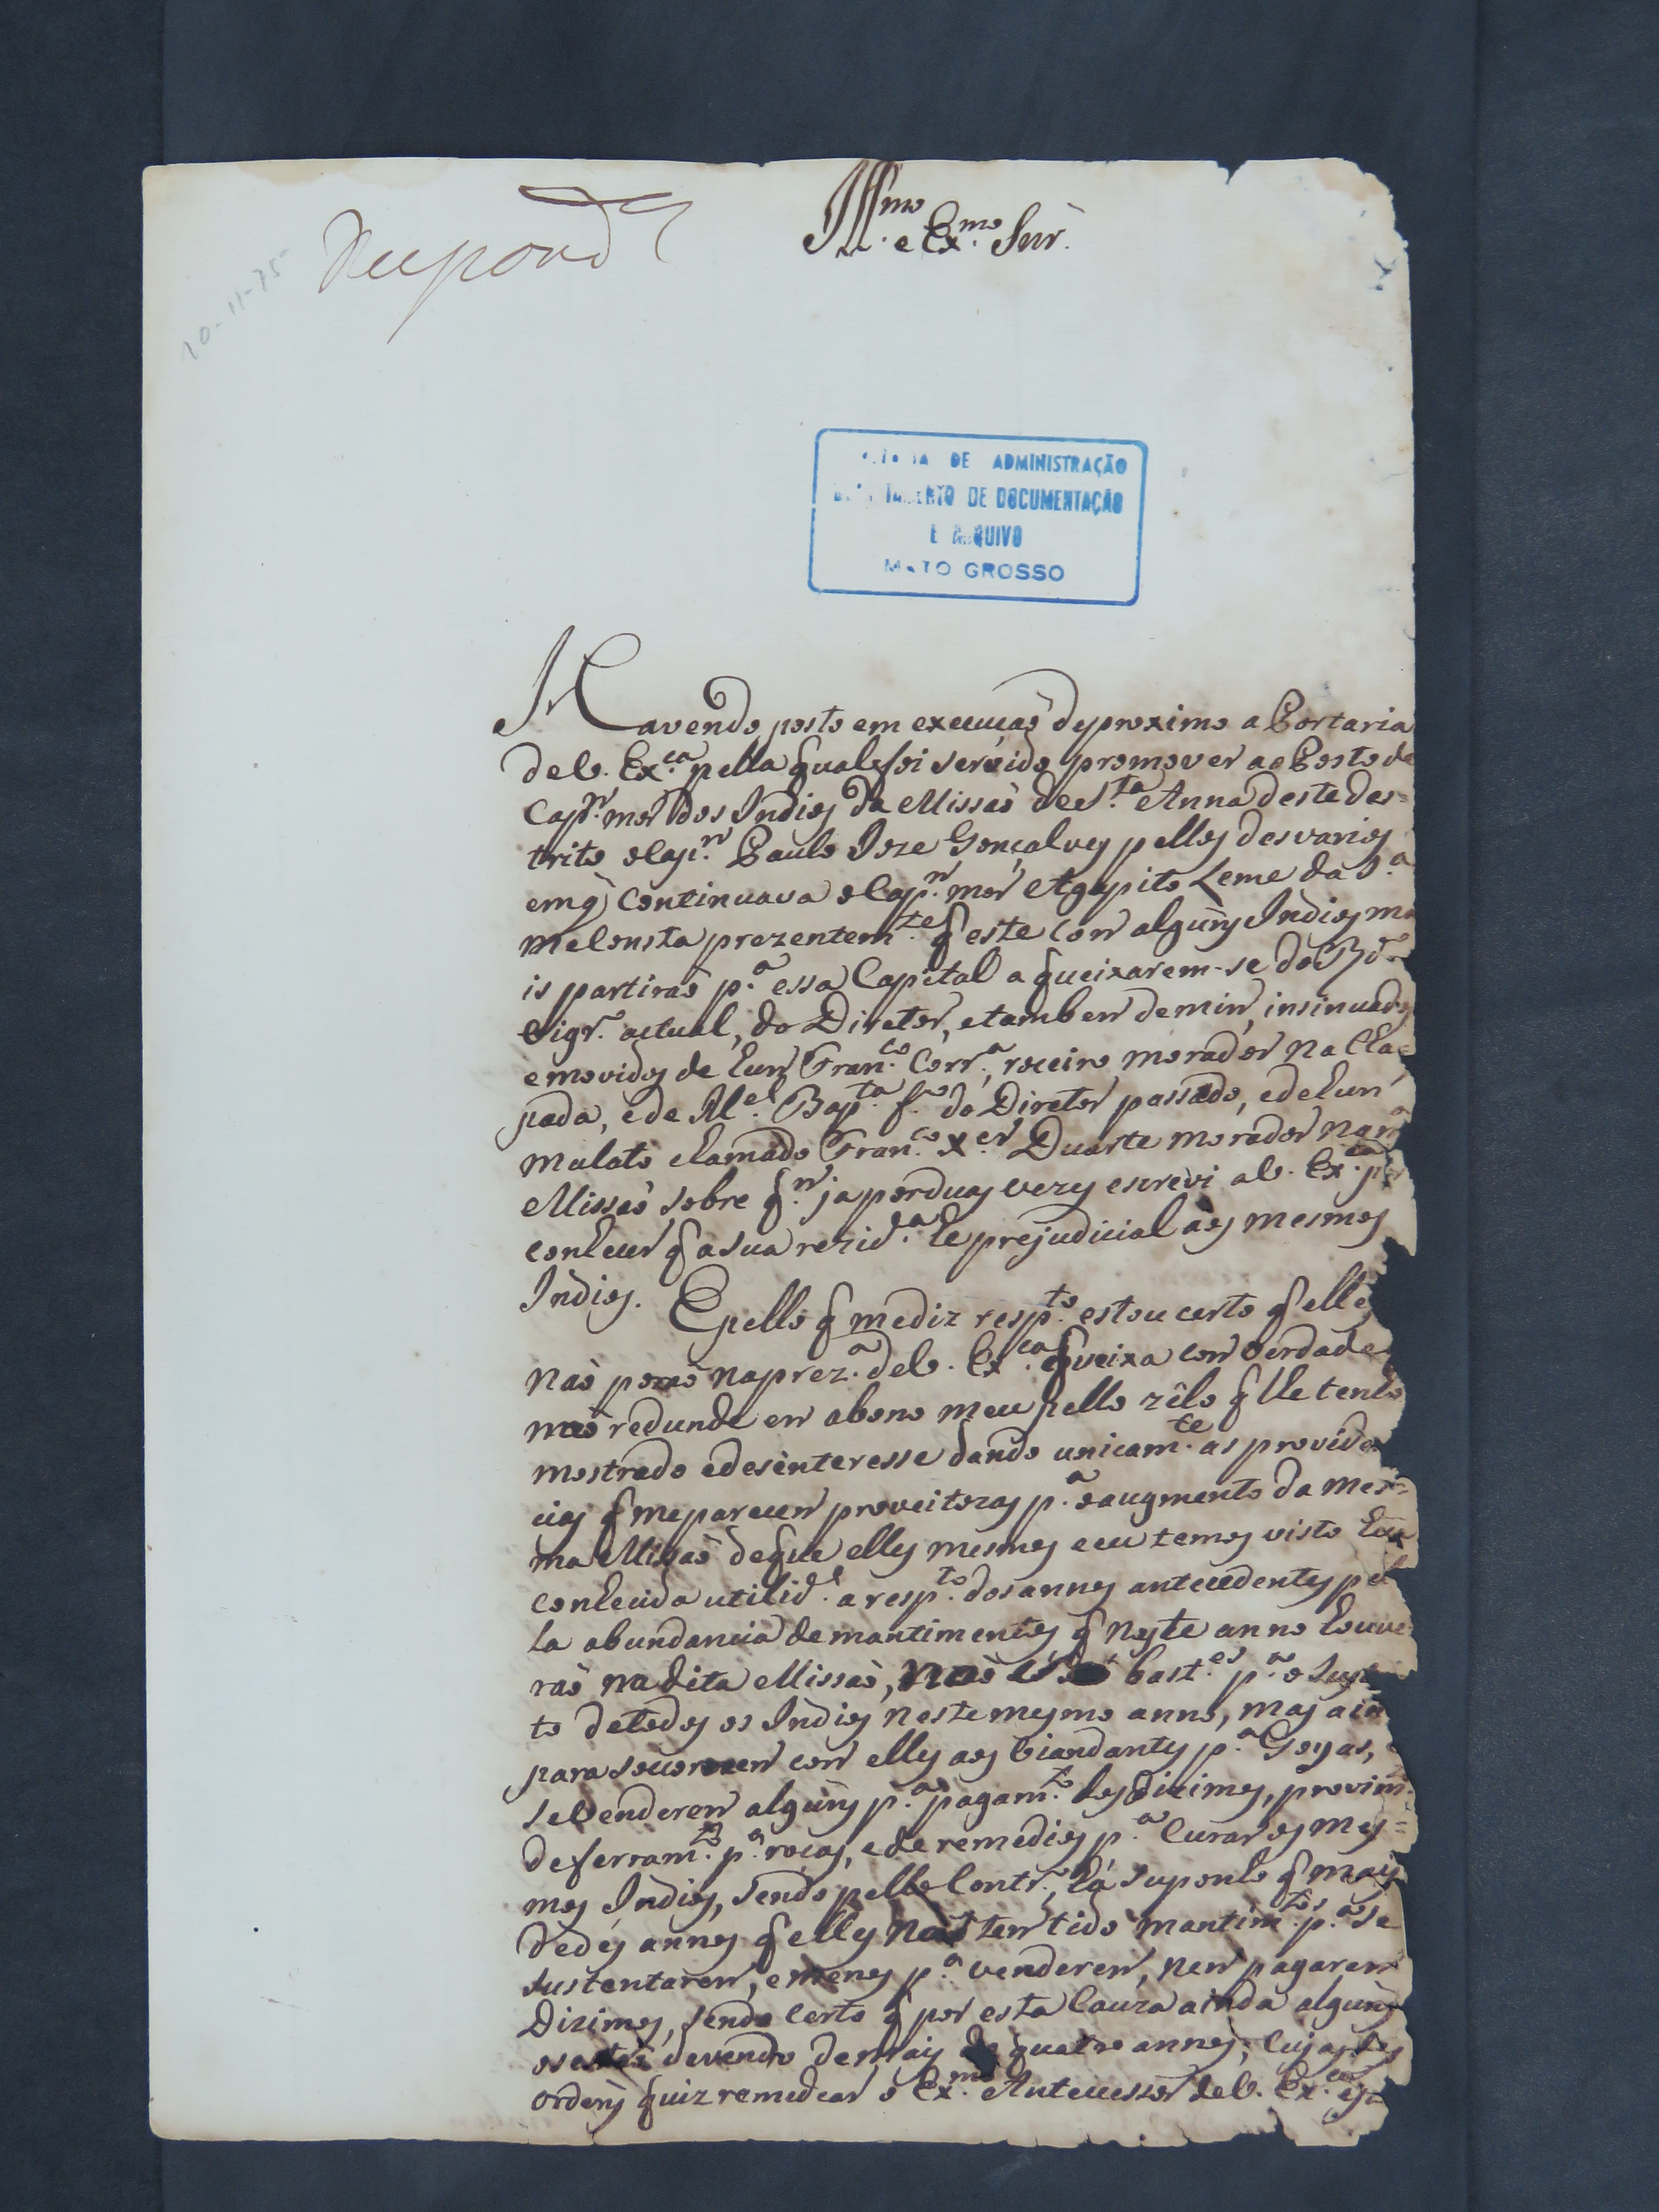 Respond.ᵃ
Ill.ᵐᵒ e Ex.ᵐᵒ Snr̃.
20-11-75
DE ADMINISTRAÇÃO
DE DOCUMENTAÇÃO
E ARQUIVO
MATO GROSSO
Havendo posto em execuçaõ deproximo a Portaria
deV. Ex.ᶜᵃ pella qual foi servido promover ao Posto de
Cap.ᵐ mor dos Indios da Missaõ deS.ᵗᵃ Anna deste des=
trito oCap.ᵐ Paulo Joze Gonçalves pellos desvarios
emq̃ Continuava oCap.ᵐ mor Agapito Leme da S.ᵃ
meConsta prezentem.ᵗᵉ q̃ este com alguns Indios ma
is partiraõ p.ᵃ essa Capital a queixarem-se do R.ᵈᵒ
Vigr.ᵒ actual, do Diretor, etambem demim, insinuados
e movidos de hum Fran.ᶜᵒ Corr.ᵃ, roceiro morador na Cha
pada, ede M.ᵉˡ Bap.ᵗᵃ f.ᵒ do Diretor passado, edehum
mulato chamado Fran.ᶜᵒ X.ᵉʳ Duarte morador nam.ᵃ
Missaõ sobre q.ᵐ ja porduas vezes escrevi aV. Ex.ᶜᵃ por
conhecer q̃ asua rezid.ᵃ he prejudicial aos mesmos
Indios. Epello q̃ mediz resp.ᵗᵒ estou certo q̃ elles
naõ poraõ naprez.ᵃ deV. Ex.ᶜᵃ queixa com verdade q̃
naõ redunde em abono meu pello zêlo q̃ lhe tenho
mostrado edesinteresse dando unicam.ᵗᵉ as providen
cias q̃ meparecem proveitozas p.ᵃ oaugmento da mes=
ma Missaõ deque elles mesmos eeu temos visto hũa
conhecida utilid.ᵉ a resp.ᵗᵒ dosannos antecedentes pel
la abundancia de mantimentos q̃ neste anno houve
raõ na dita Missaõ, naõ só bast.ᵉˢ p.ᵃ o suste
to detodos os Indios nestemesmo anno, mas ain
para socorrerem com elles aos Viandantes p.ᵃ Goyas, e
seVenderem alguns p.ᵃ pagam.ᵗᵒ dos Dizimos, provim.
deferram.ᵗᵃ p.ᵃ roças, ede remedios p.ᵃ Curar os mes=
mos Indios, sendo pello Contr.ᵒ, ha suponho q̃ mais
dedes annos q̃ elles naõ tem tido mantim.ᵗᵒˢ p.ᵃ se
sustentarem, emenos p.ᵃ venderem, nem pagarem
Dizimos, sendo certo q̃ por esta Cauza ainda alguns
os estaõ devendo demais de quatro annos, Cujas des
ordens quiz remedear o Ex.ᵐᵒ Antecessor deV. Ex.ᶜᵃ